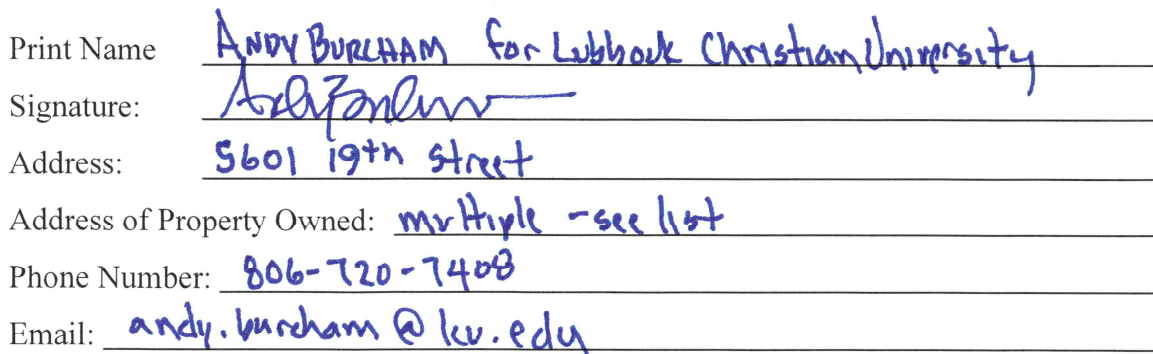 Print Name ANDY BURCHAM for Lubbock Christian University
Signature:
Address: 5601 19th street
Address of Property Owned: multiple - see list
Phone Number: 806-720-7408
Email: andy.burcham @ lcu.edu